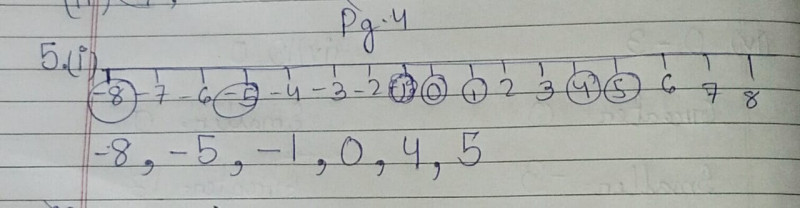 Pg.4
5.(i)
-8 -7 -6 -5 -4 -3 -2 -1 0 1 2 3 4 5 6 7 8
-8, -5, -1, 0, 4, 5